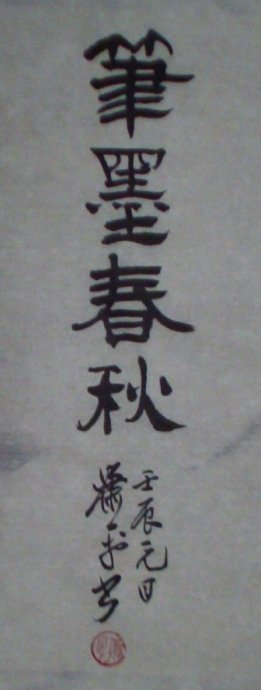 筆墨春秋
壬辰元日
蕭平書